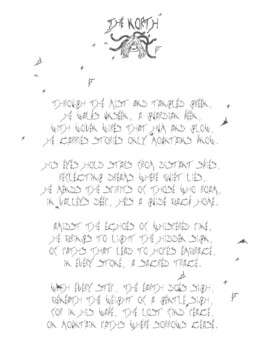 THE NORTH
THROUGH THE MIST AND TANGLED GREEN,
HE WALKS UNSEEN, A GUARDIAN KEEN,
WITH WOVEN WIRES THAT HUM AND GLOW,
HE CARRIES STORIES ONLY MOUNTAINS KNOW.
HIS EYES HOLD STARS FROM DISTANT SKIES,
REFLECTING DREAMS WHERE QUIET LIES,
HE MENDS THE SPIRITS OF THOSE WHO ROAM,
IN VALLEYS DEEP, HE'S A GUIDE BACK HOME.
AMIDST THE ECHOES OF WHISPERED PINE,
HE BRINGS TO LIGHT THE HIDDEN SIGN,
OF PATHS THAT LEAD TO HOPE'S EMBRACE,
IN EVERY STONE, A SACRED TRACE.
WITH EVERY STEP, THE EARTH DOES SIGH,
BENEATH THE WEIGHT OF A GENTLE SIGH,
FOR IN HIS WAKE, THE LOST FIND PEACE,
ON MOUNTAIN PATHS WHERE SORROWS CEASE.